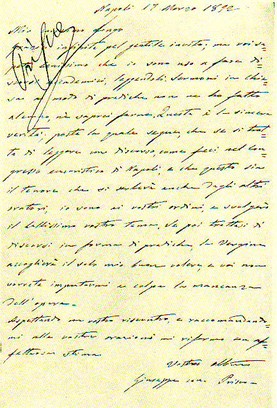 Napoli 17 Marzo 1892
Mio
infinite pel gentile invito; ma voi sa-
che io sono uso a fare di-
scorsi accademici, leggendoli. Sermoni in chie-
sa a modo di prediche non ne ho fatto
alcuno, nè saprei farne. Questa è la sincera
verità; posta la quale segue, che se si trat-
ta di leggere un discorso, come feci nel con-
gresso eucaristico di Napoli, e che questo sia
il tenore che si seguirà anche dagli altri
oratori, io sono ai vostri ordini, e svolgerò
il bellissimo vostro tema. Se poi trattasi di
discorsi in forma di prediche, la Vergine
accoglierà il solo mio buon volere, e voi non
vorrete imputarmi a colpa la mancanza
dell'opera.
Aspettando un vostro riscontro, e raccomandando-
mi alle vostre orazioni mi riformo con af-
fettuosa stima
Vostro
Giuseppe can. Prisco